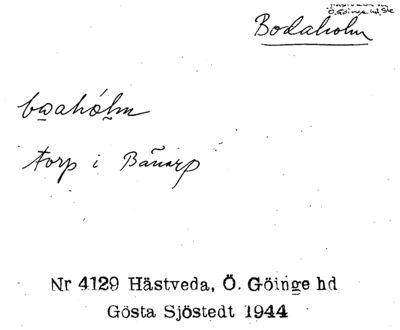 HÄSTVEDA SN
Ö. Göinge hd, Sk
Bodaholm
bωahólm
torp i Bãnarp
Nr 4129 Hästveda, Ö. Göinge hd
Gösta Sjöstedt 1944